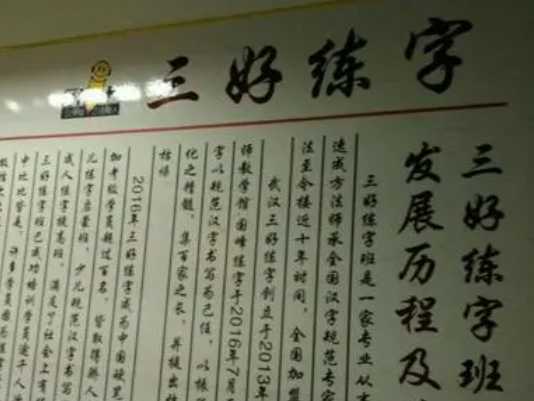 三好练字
三好练字班
发展历程及
三好练字班是一家专业从
速成方法师承全国汉字规范专家
法至今接近十年时间，全国加盟
武汉三好练字创立于2013年
师教学馆，国峰练字于2016年7月
字以规范汉字书写为己任，以
化之精髓，集百家之长，并提出
2016年三好练字成为中国硬笔
加考级学员超过百名，皆取得
儿练字启蒙班，少儿规范汉字书写
成人练字提高班，满足了社会上
三好练字班已成功培训学员近千人
中比比皆是，许多学员因为练字